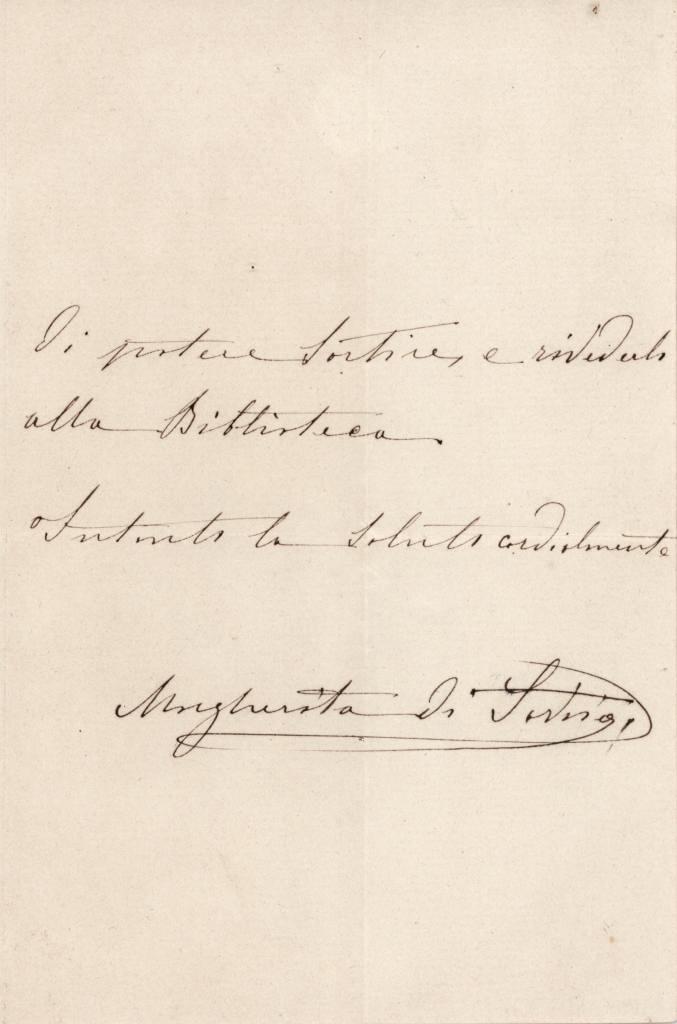 di potere sortire, e rivederla
alla Biblioteca.
Intanto la saluto cordialmente
Margherita di Savoia,